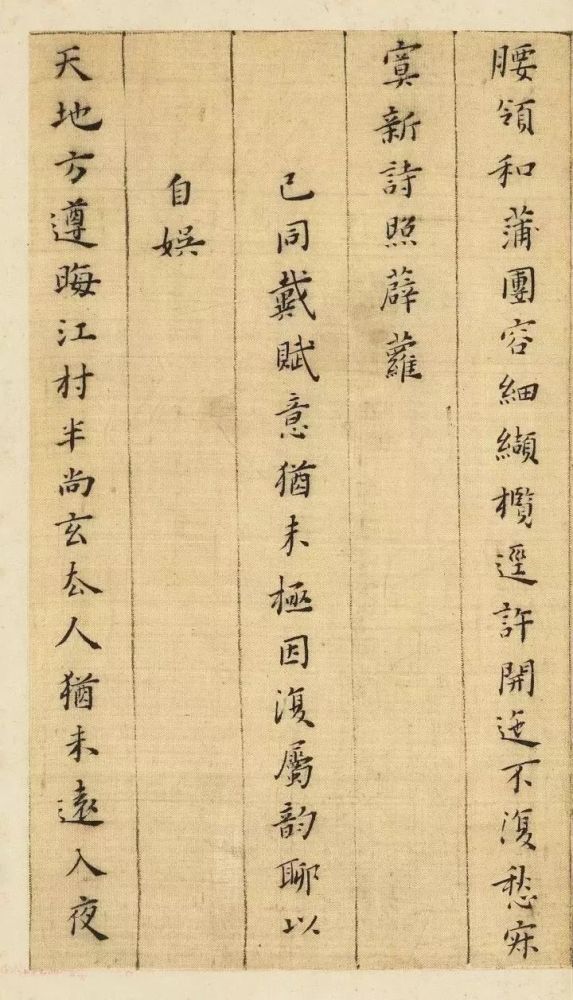 腰領和蒲團容細纈欖逕許開迤不復愁寂
寞新詩照薜蘿
已同戴賦意猶未極因復屬韵聊以
自娛
天地方遵晦江村半尚玄厺人猶未遠入夜